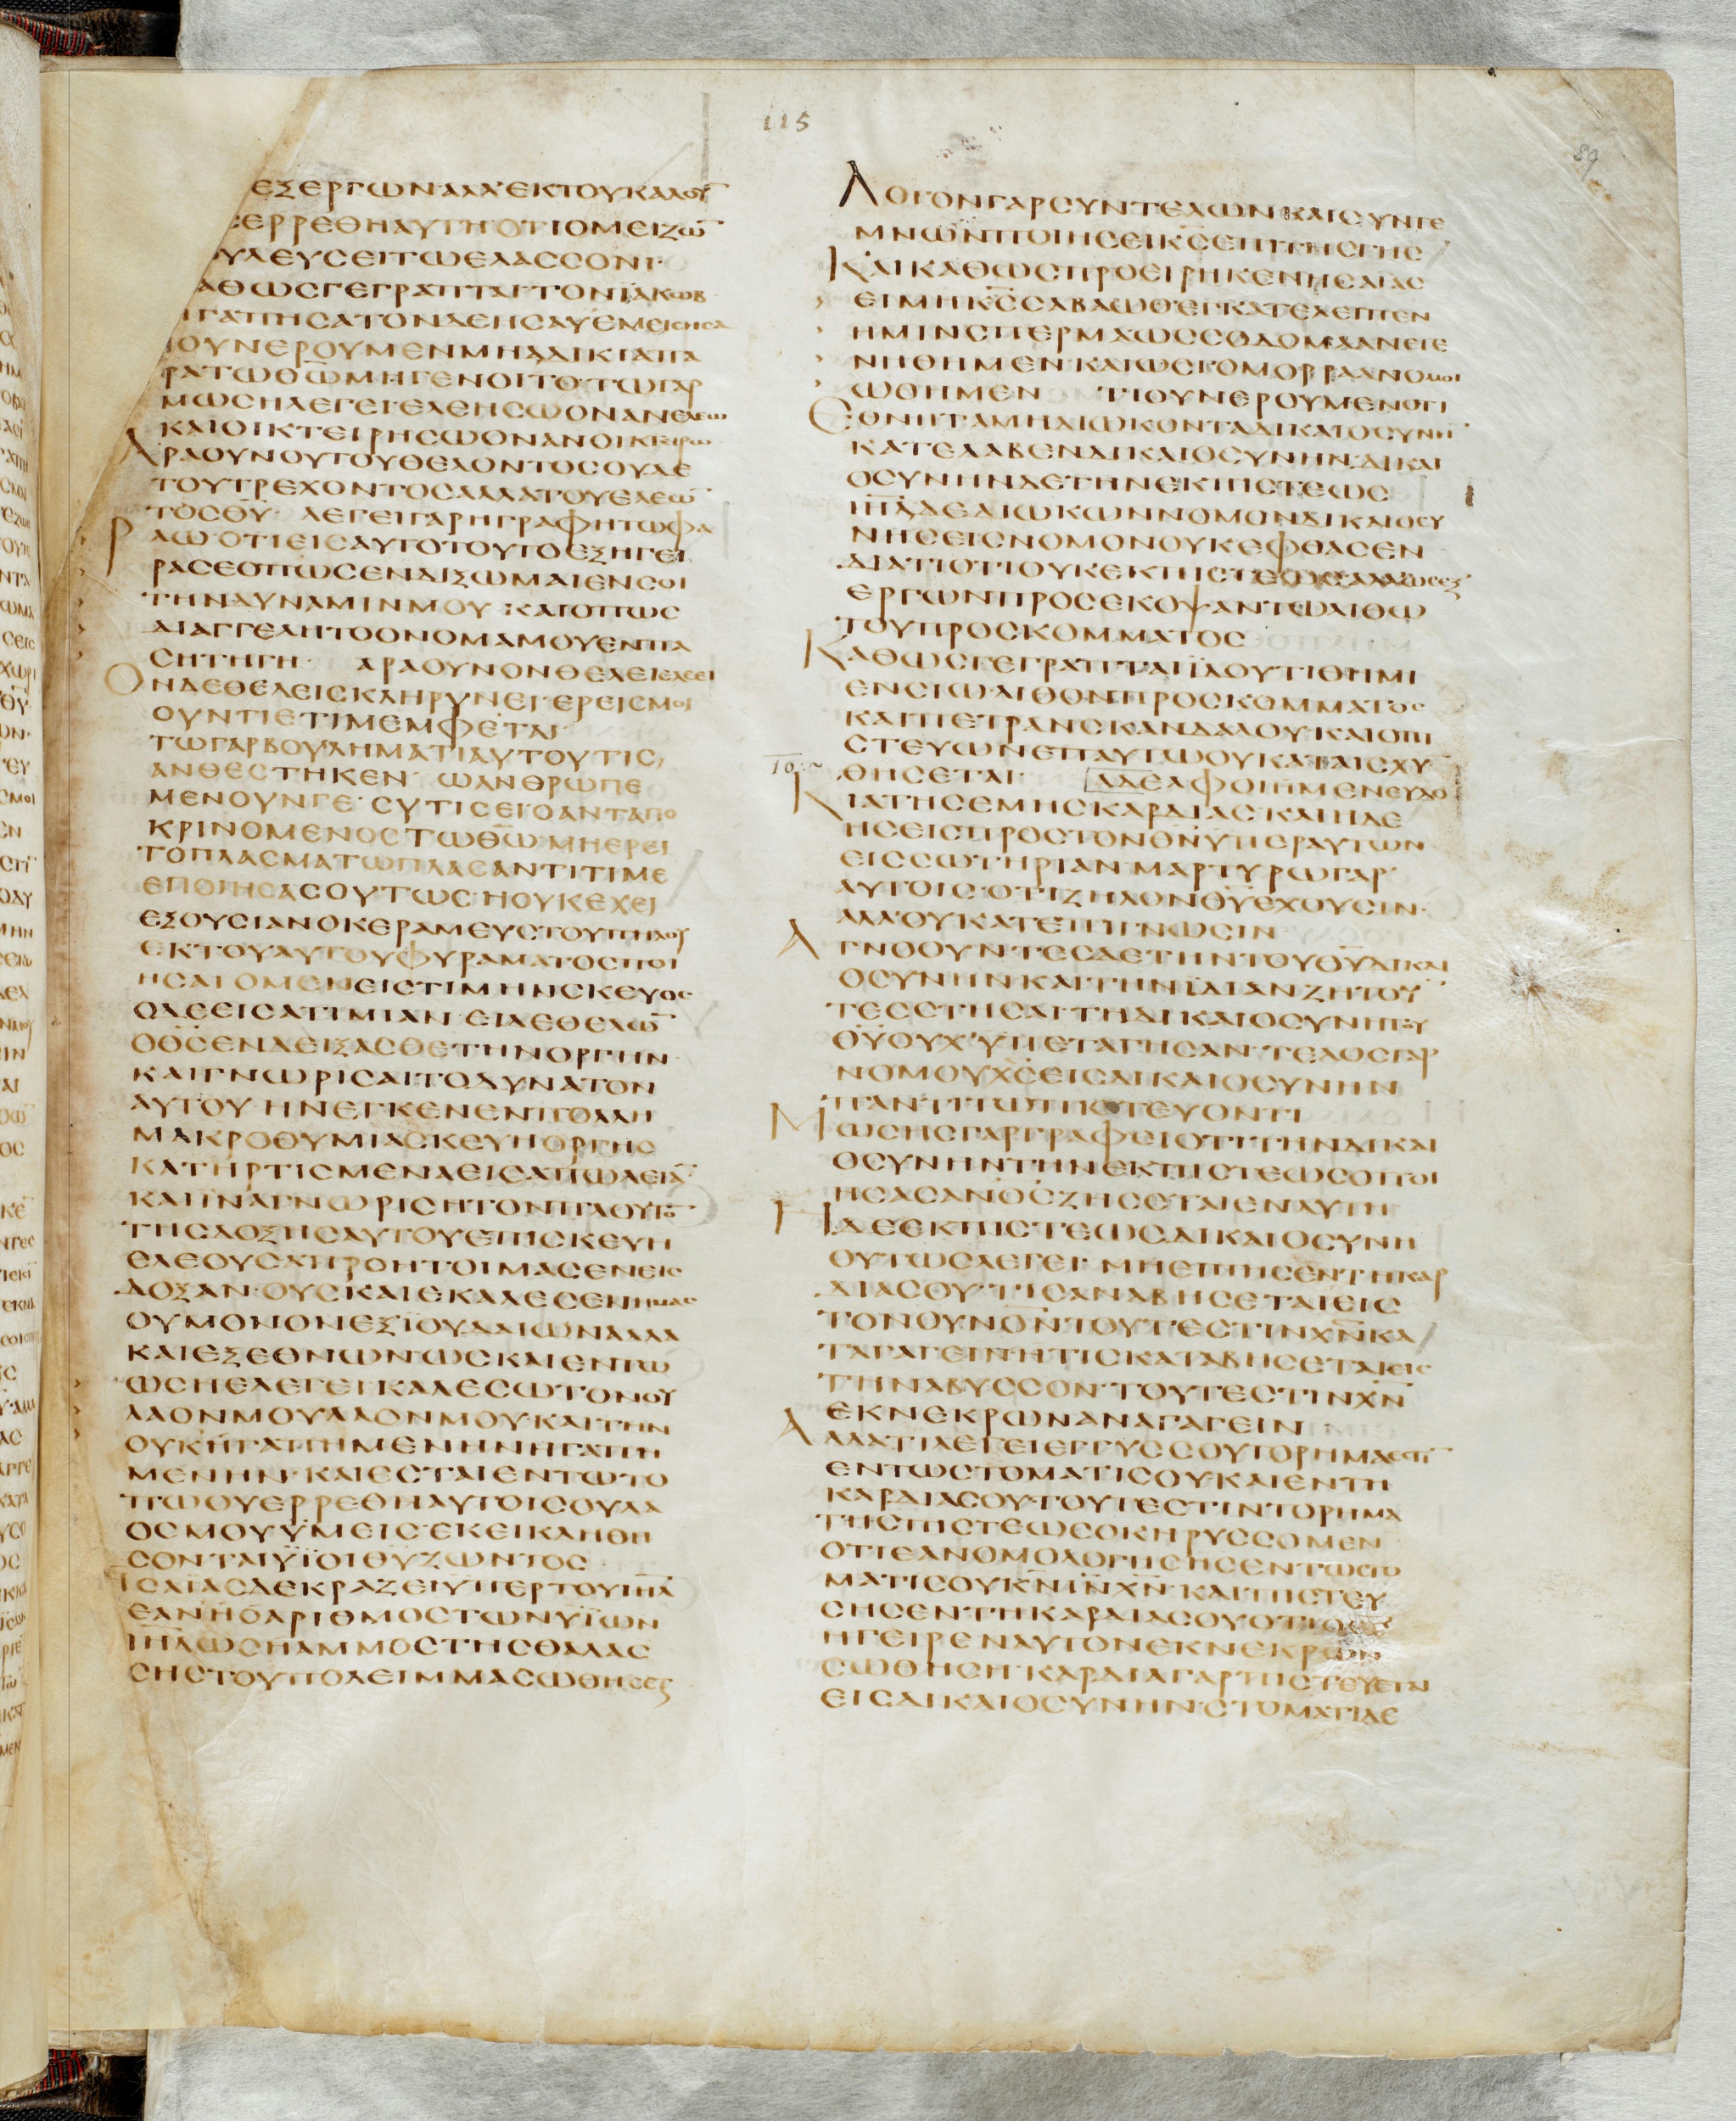 115
89
ΕΞΕΡΓΩΝ·ΑΛΛ᾽ΕΚΤΟΥΚΑΛΟΥ̅
ΕΡΡΕΘΗΑΥΤΗΟΤΙΟΜΕΙΖΩ̅
ΟΥΛΕΥΣΕΙΤΩΕΛΑΣΣΟΝΙ·
ΑΘΩΣΓΕΓΡΑΠΤΑΙ·ΤΟΝΪΑΚΩΒ
ΗΓΑΠΗΣΑΤΟΝΔΕΗΣΑΥΕΜΕΙΣΗΣΑ
ΟΥΝΕΡΟΥΜΕΝΜΗΑΔΙΚΙΑΠΑ
ΡΑΤΩΘΩ̅ΜΗΓΕΝΟΙΤΟ·ΤΩΓΑΡ
ΜΩΣΗΛΕΓΕΙ·ΕΛΕΗΣΩΟΝΑΝΕΛΕΩ
ΚΑΙΟΙΚΤΕΙΡΗΣΩΟΝΑΝΟΙΚΤΕΙΡΩ
ΑΡΑΟΥΝΟΥΤΟΥΘΕΛΟΝΤΟΣΟΥΔΕ
ΤΟΥΤΡΕΧΟΝΤΟΣΑΛΛΑΤΟΥΕΛΕΩ̅
ΤΟΣΘΥ̅· ΛΕΓΕΙΓΑΡΗΓΡΑΦΗΤΩΦΑ
ΡΑΩ·ΟΤΙΕΙΣΑΥΤΟΤΟΥΤΟΕΞΗΓΕΙ
ΡΑΣΕΟΠΩΣΕΝΔΙΞΩΜΑΙΕΝΣΟΙ
ΤΗΝΔΥΝΑΜΙΝΜΟΥ·ΚΑΙΟΠΩΣ
ΔΙΑΓΓΕΛΗΤΟΟΝΟΜΑΜΟΥΕΝΠΑ
ΣΗΤΗΓΗ· ΑΡΑΟΥΝΟΝΘΕΛΕΙΕΛΕΕΙ
ΟΝΔΕΘΕΛΕΙΣΚΛΗΡΥΝΕΙ·ΕΡΕΙΣΜΟΙ
ΟΥΝΤΙΕΤΙΜΕΜΦΕΤΑΙ·
ΤΩΓΑΡΒΟΥΛΗΜΑΤΙΑΥΤΟΥΤΙΣ
ΑΝΘΕΣΤΗΚΕΝ· ΩΑΝΘΡΩΠΕ
ΜΕΝΟΥΝΓΕ·ΣΥΤΙΣΕΙΟΑΝΤΑΠΟ
ΚΡΙΝΟΜΕΝΟΣΤΩΘΩ̅·ΜΗΕΡΕΙ
ΤΟΠΛΑΣΜΑΤΩΠΛΑΣΑΝΤΙΤΙΜΕ
ΕΠΟΙΗΣΑΣΟΥΤΩΣ·ΗΟΥΚΕΧΕΙ
ΕΞΟΥΣΙΑΝΟΚΕΡΑΜΕΥΣΤΟΥΠΗΛΟΥ
ΕΚΤΟΥΑΥΤΟΥΦΥΡΑΜΑΤΟΣΠΟΙ
ΗΣΑΙΟΜΕΝΕΙΣΤΙΜΗΝΣΚΕΥΟΣ
ΟΔΕΕΙΣΑΤΙΜΙΑΝ·ΕΙΔΕΘΕΛΩ̅
ΟΘ̅Σ̅ΕΝΔΕΙΞΑΣΘΕΤΗΝΟΡΓΗΝ
ΚΑΙΓΝΩΡΙΣΑΙΤΟΔΥΝΑΤΟΝ
ΑΥΤΟΥ·ΗΝΕΓΚΕΝΕΝΠΟΛΛΗ
ΜΑΚΡΟΘΥΜΙΑΣΚΕΥΗΟΡΓΗΣ
ΚΑΤΗΡΤΙΣΜΕΝΑΕΙΣΑΠΩΛΕΙΑ̅
ΚΑΙΪΝΑΓΝΩΡΙΣΗΤΟΝΠΛΟΥΤΟ̅
ΤΗΣΔΟΞΗΣΑΥΤΟΥΕΠΙΣΚΕΥΗ
ΕΛΕΟΥΣΑΠΡΟΗΤΟΙΜΑΣΕΝΕΙΣ
ΔΟΞΑΝ·ΟΥΣΚΑΙΕΚΑΛΕΣΕΝΗΜΑΣ
ΟΥΜΟΝΟΝΕΞΪΟΥΔΑΙΩΝΑΛΛΑ
ΚΑΙΕΞΕΘΝΩΝΩΣΚΑΙΕΝΤΩ
ΩΣΗΕΛΕΓΕΙ·ΚΑΛΕΣΩΤΟΝΟΥ
ΛΑΟΝΜΟΥΛΑΟΝΜΟΥ·ΚΑΙΤΗΝ
ΟΥΚΗΓΑΠΗΜΕΝΗΝΗΓΑΠΗ
ΜΕΝΗΝ·ΚΑΙΕΣΤΑΙΕΝΤΩΤΟ
ΠΩΟΥΕΡΡΕΘΗΑΥΤΟΙΣΟΥΛΑ
ΟΣΜΟΥΫΜΕΙΣ·ΕΚΕΙΚΛΗΘΗ
ΣΟΝΤΑΙΫΪΟΙΘΥ̅ΖΩΝΤΟΣ
ΗΣΑΪΑΣΔΕΚΡΑΖΕΙΫΠΕΡΤΟΥΙΗ̅Λ
ΕΑΝΗΟΑΡΙΘΜΟΣΤΩΝΫΪΩΝ
ΙΗ̅ΛΩΣΗΑΜΜΟΣΤΗΣΘΑΛΑΣ
ΣΗΣΤΟΥΠΟΛΕΙΜΜΑΣΩΘΗΣΕΤ
ΛΟΓΟΝΓΑΡΣΥΝΤΕΛΩΝΚΑΙΣΥΝΤΕ
ΜΝΩΝΠΟΙΗΣΕΙΚ̅Σ̅ΕΠΙΤΗΣΓΗΣ
ΚΑΙΚΑΘΩΣΠΡΟΕΙΡΗΚΕΝΗΣΑΪΑΣ
ΕΙΜΗΚ̅Σ̅ΣΑΒΑΩΘΕΓΚΑΤΕΛΕΙΠΕΝ
ΗΜΙΝΣΠΕΡΜΑΩΣΣΟΔΟΜΑΑΝΕΓΕ
ΝΗΘΗΜΕΝ·ΚΑΙΩΣΓΟΜΟΡΡΑΑΝΟΜΟΙ
ΩΘΗΜΕΝ ΤΙΟΥΝΕΡΟΥΜΕΝΟΤΙ
ΕΘΝΗΤΑΜΗΔΙΩΚΟΝΤΑΔΙΚΑΙΟΣΥΝΗ̅
ΚΑΤΕΛΑΒΕΝΔΙΚΑΙΟΣΥΝΗΝ·ΔΙΚΑΙ
ΟΣΥΝΗΝΔΕΤΗΝΕΚΠΙΣΤΕΩΣ
ΙΗ̅ΛΔΕΔΙΩΚΩΝΝΟΜΟΝΔΙΚΑΙΟΣΥ
ΝΗΣΕΙΣΝΟΜΟΝΟΥΚΕΦΘΑΣΕΝ
ΔΙΑΤΙΟΤΙΟΥΚΕΚΠΙΣΤΕΩΣΑΛΛΩΣΕΞ
ΕΡΓΩΝΠΡΟΣΕΚΟΨΑΝΤΩΛΙΘΩ
ΤΟΥΠΡΟΣΚΟΜΜΑΤΟΣ
ΚΑΘΩΣΓΕΓΡΑΠΤΑΙΪΔΟΥΤΙΘΗΜΙ
ΕΝΣΙΩΛΙΘΟΝΠΡΟΣΚΟΜΜΑΤΟΣ
ΚΑΙΠΕΤΡΑΝΣΚΑΝΔΑΛΟΥΚΑΙΟΠΙ
ΣΤΕΥΩΝΕΠΑΥΤΩΟΥΚΑΤΑΙΣΧΥ̅
10.
ΘΗΣΕΤΑΙ· ΑΔΕΛΦΟΙΗΜΕΝΕΥΔΟ
ΚΙΑΤΗΣΕΜΗΣΚΑΡΔΙΑΣΚΑΙΗΔΕ
ΗΣΕΙΣΠΡΟΣΤΟΝΘ̅Ν̅ΫΠΕΡΑΥΤΩΝ
ΕΙΣΣΩΤΗΡΙΑΝ·ΜΑΡΤΥΡΩΓΑΡ
ΑΥΤΟΙΣ·ΟΤΙΖΗΛΟΝΘΥ̅ΕΧΟΥΣΙΝ·
ΑΛΛ᾽ΟΥΚΑΤΕΠΙΓΝΩΣΙΝ
ΑΓΝΟΟΥΝΤΕΣΔΕΤΗΝΤΟΥΘΥ̅ΔΙΚΑΙ
ΟΣΥΝΗΝΚΑΙΤΗΝΪΔΙΑΝΖΗΤΟΥ̅
ΤΕΣΣΤΗΣΑΙ·ΤΗΔΙΚΑΙΟΣΥΝΗΤΟΥ
ΘΥ̅ΟΥΧ᾽ΫΠΕΤΑΓΗΣΑΝ·ΤΕΛΟΣΓΑΡ
ΝΟΜΟΥΧ̅Σ̅ΕΙΣΔΙΚΑΙΟΣΥΝΗΝ
ΠΑΝΤΙΤΩΠΙΣΤΕΥΟΝΤΙ
ΜΩΣΗΣΓΑΡΓΡΑΦΕΙΟΤΙΤΗΝΔΙΚΑΙ
ΟΣΥΝΗΝΤΗΝΕΚΠΙΣΤΕΩΣΟΠΟΙ
ΗΣΑΣΑΝΟ̅Σ̅ΖΗΣΕΤΑΙΕΝΑΥΤΗ
ΗΔΕΕΚΠΙΣΤΕΩΣΔΙΚΑΙΟΣΥΝΗ
ΟΥΤΩΣΛΕΓΕΙ·ΜΗΕΙΠΗΣΕΝΤΗΚΑΡ
ΔΙΑΣΟΥ·ΤΙΣΑΝΑΒΗΣΕΤΑΙΕΙΣ
ΤΟΝΟΥΝΟ̅Ν̅·ΤΟΥΤΕΣΤΙΝΧ̅Ν̅ΚΑ
ΤΑΓΑΓΕΙΝ·ΗΤΙΣΚΑΤΑΒΗΣΕΤΑΙΕΙΣ
ΤΗΝΑΒΥΣΣΟΝ·ΤΟΥΤΕΣΤΙΝΧ̅Ν̅
ΕΚΝΕΚΡΩΝΑΝΑΓΑΓΕΙΝ
ΑΛΛΑΤΙΛΕΓΕΙΕΓΓΥΣΣΟΥΤΟΡΗΜΑΕΣΤΙ̅
ΕΝΤΩΣΤΟΜΑΤΙΣΟΥΚΑΙΕΝΤΗ
ΚΑΡΔΙΑΣΟΥ·ΤΟΥΤΕΣΤΙΝΤΟΡΗΜΑ
ΤΗΣΠΙΣΤΕΩΣΟΚΗΡΥΣΣΟΜΕΝ
ΟΤΙΕΑΝΟΜΟΛΟΓΗΣΗΣΕΝΤΩΣΤΟ
ΜΑΤΙΣΟΥΚ̅Ν̅Ι̅Ν̅Χ̅Ν̅·ΚΑΙΠΙΣΤΕΥ
ΣΗΣΕΝΤΗΚΑΡΔΙΑΣΟΥΟΤΙΟΘ̅Σ̅
ΗΓΕΙΡΕΝΑΥΤΟΝΕΚΝΕΚΡΩΝ
ΣΩΘΗΣΗ·ΚΑΡΔΙΑΓΑΡΠΙΣΤΕΥΕΤΑΙ
ΕΙΣΔΙΚΑΙΟΣΥΝΗΝ·ΣΤΟΜΑΤΙΔΕ